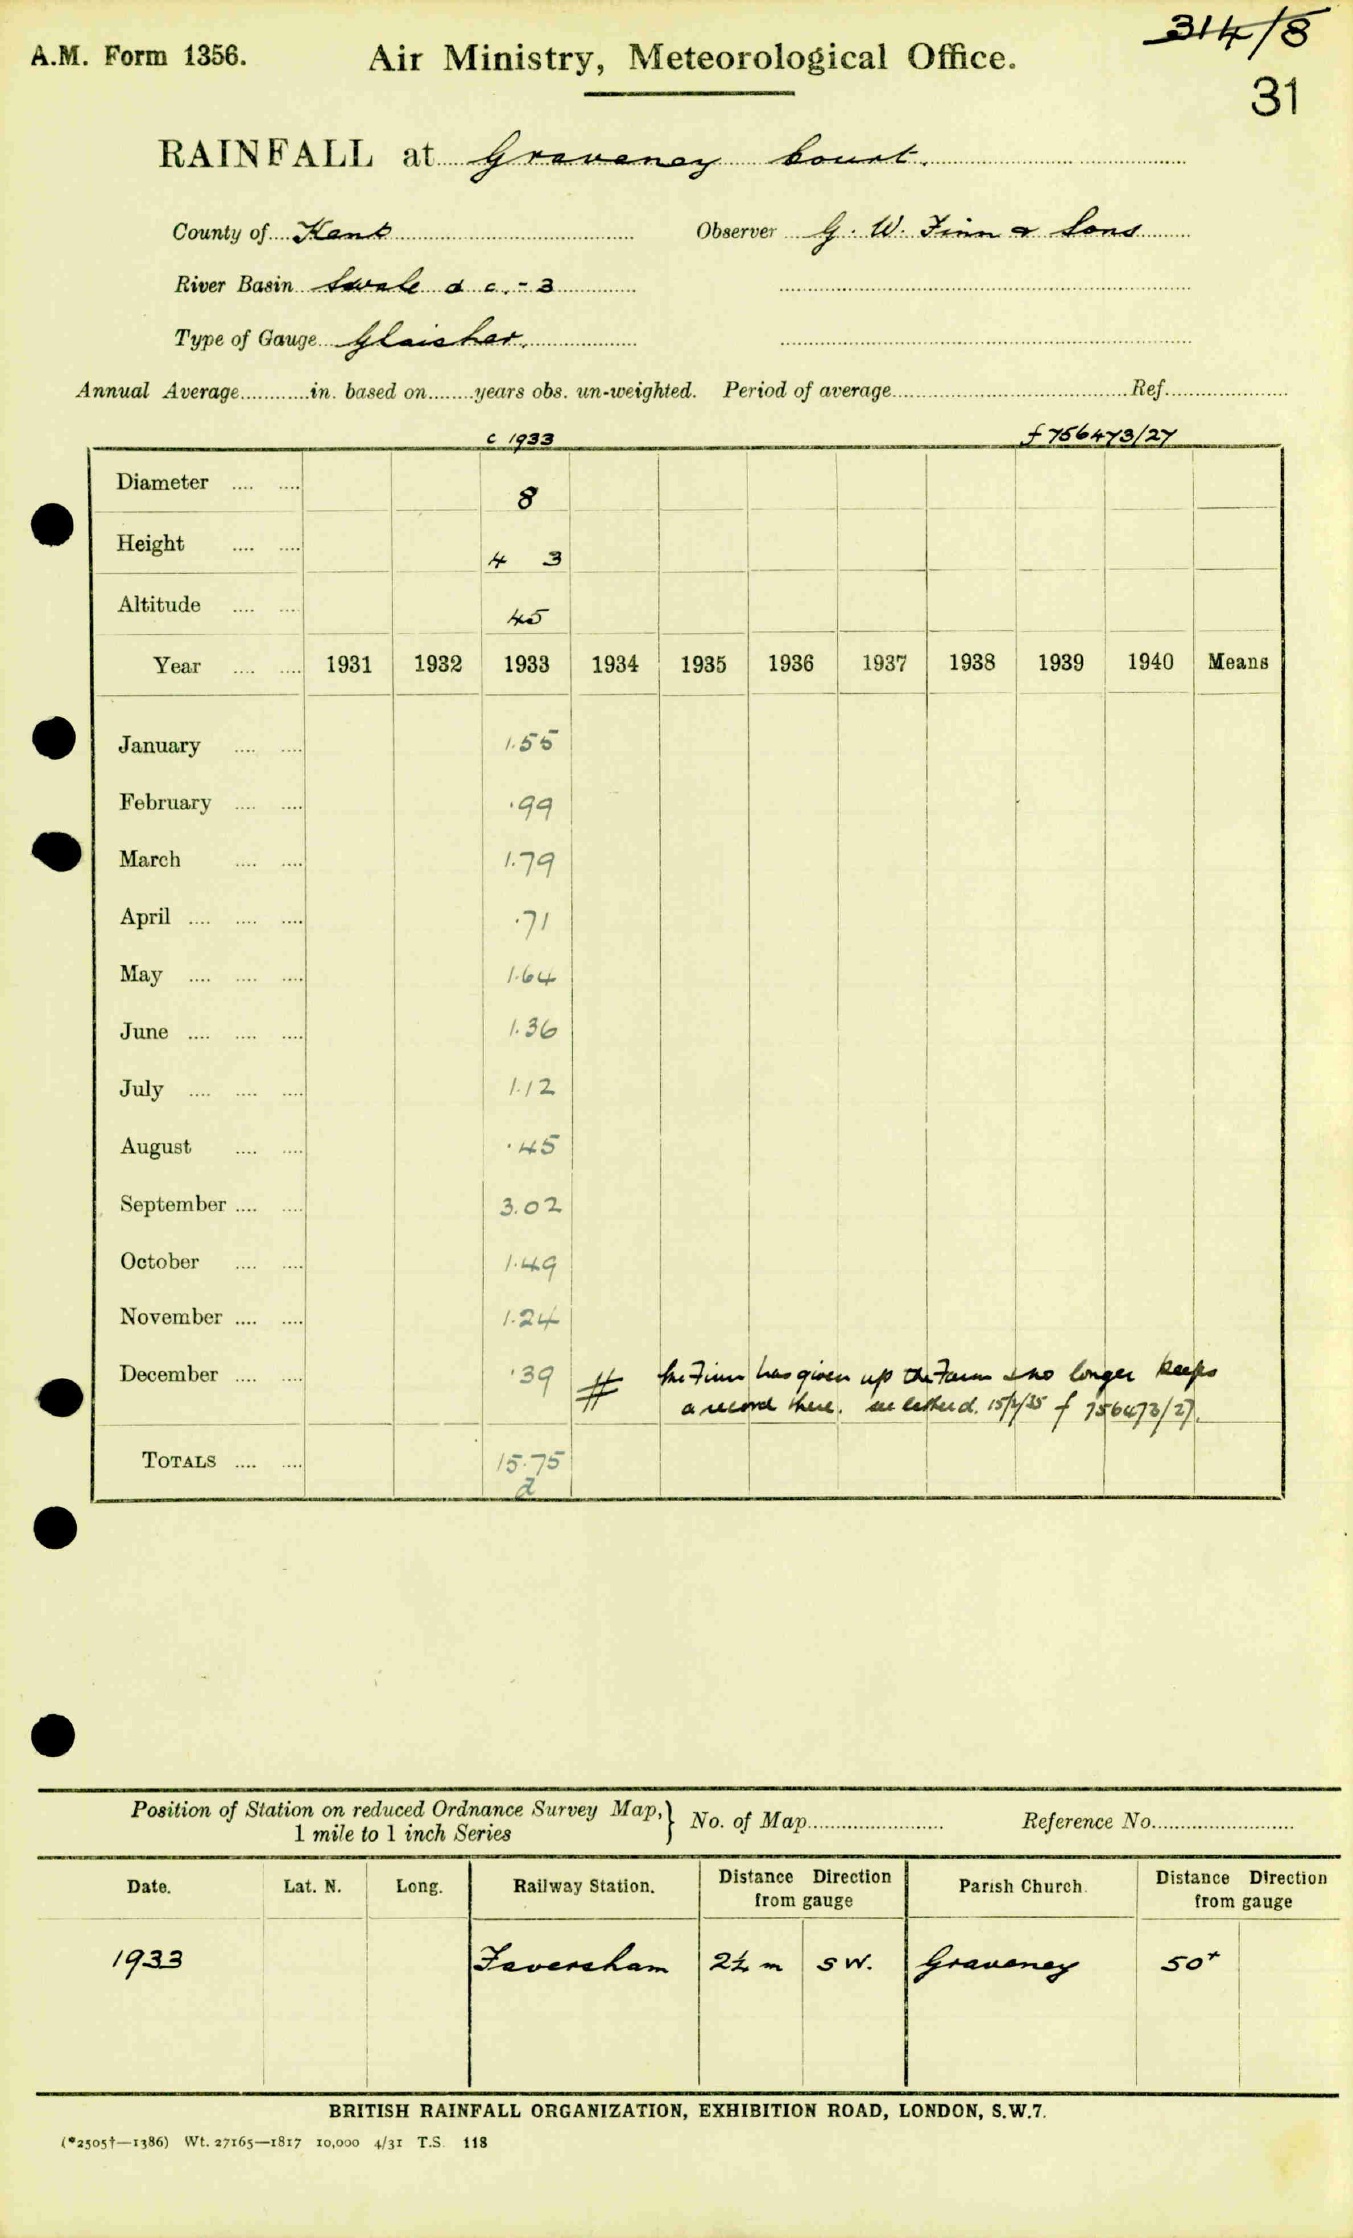 314/8
A.M. Form 1356. Air Ministry, Meteorological Office.
31
RAINFALL at Graveney Court.
County of Kent Observer G. W. Finn & Sons
River Basin Swale d c. - 3
Type of Gauge Glaisher.
Annual Average............in. based on........years obs. un-weighted. Period of average.......................................Ref.....................
c 1933 f 756473/27
Diameter .... .... 8
Height .... .... 4 3
Altitude .... .... 45
Year .... .... 1931 1932 1933 1934 1935 1936 1937 1938 1939 1940 Means
January .... .... 1.55
February .... .... .99
March .... .... 1.79
April .... .... .... .71
May .... .... .... 1.64
June .... .... .... 1.36
July .... .... .... 1.12
August .... .... .45
September .... .... 3.02
October .... .... 1.49
November .... .... 1.24
December .... .... .39 # Mr Finn has given up the Farm & no longer keeps
a record there. see letter d. 15/2/35 f 756473/27.
TOTALS .... .... 15.75
d
Position of Station on reduced Ordnance Survey Map, } No. of Map........................ Reference No.........................
1 mile to 1 inch Series
Date. Lat. N. Long. Railway Station. Distance Direction from gauge Parish Church. Distance Direction from gauge
1933 Faversham 2¼ m SW. Graveney 50+
BRITISH RAINFALL ORGANIZATION, EXHIBITION ROAD, LONDON, S.W.7.
(*2505†—1386) Wt. 27165—1817 10,000 4/31 T.S. 118